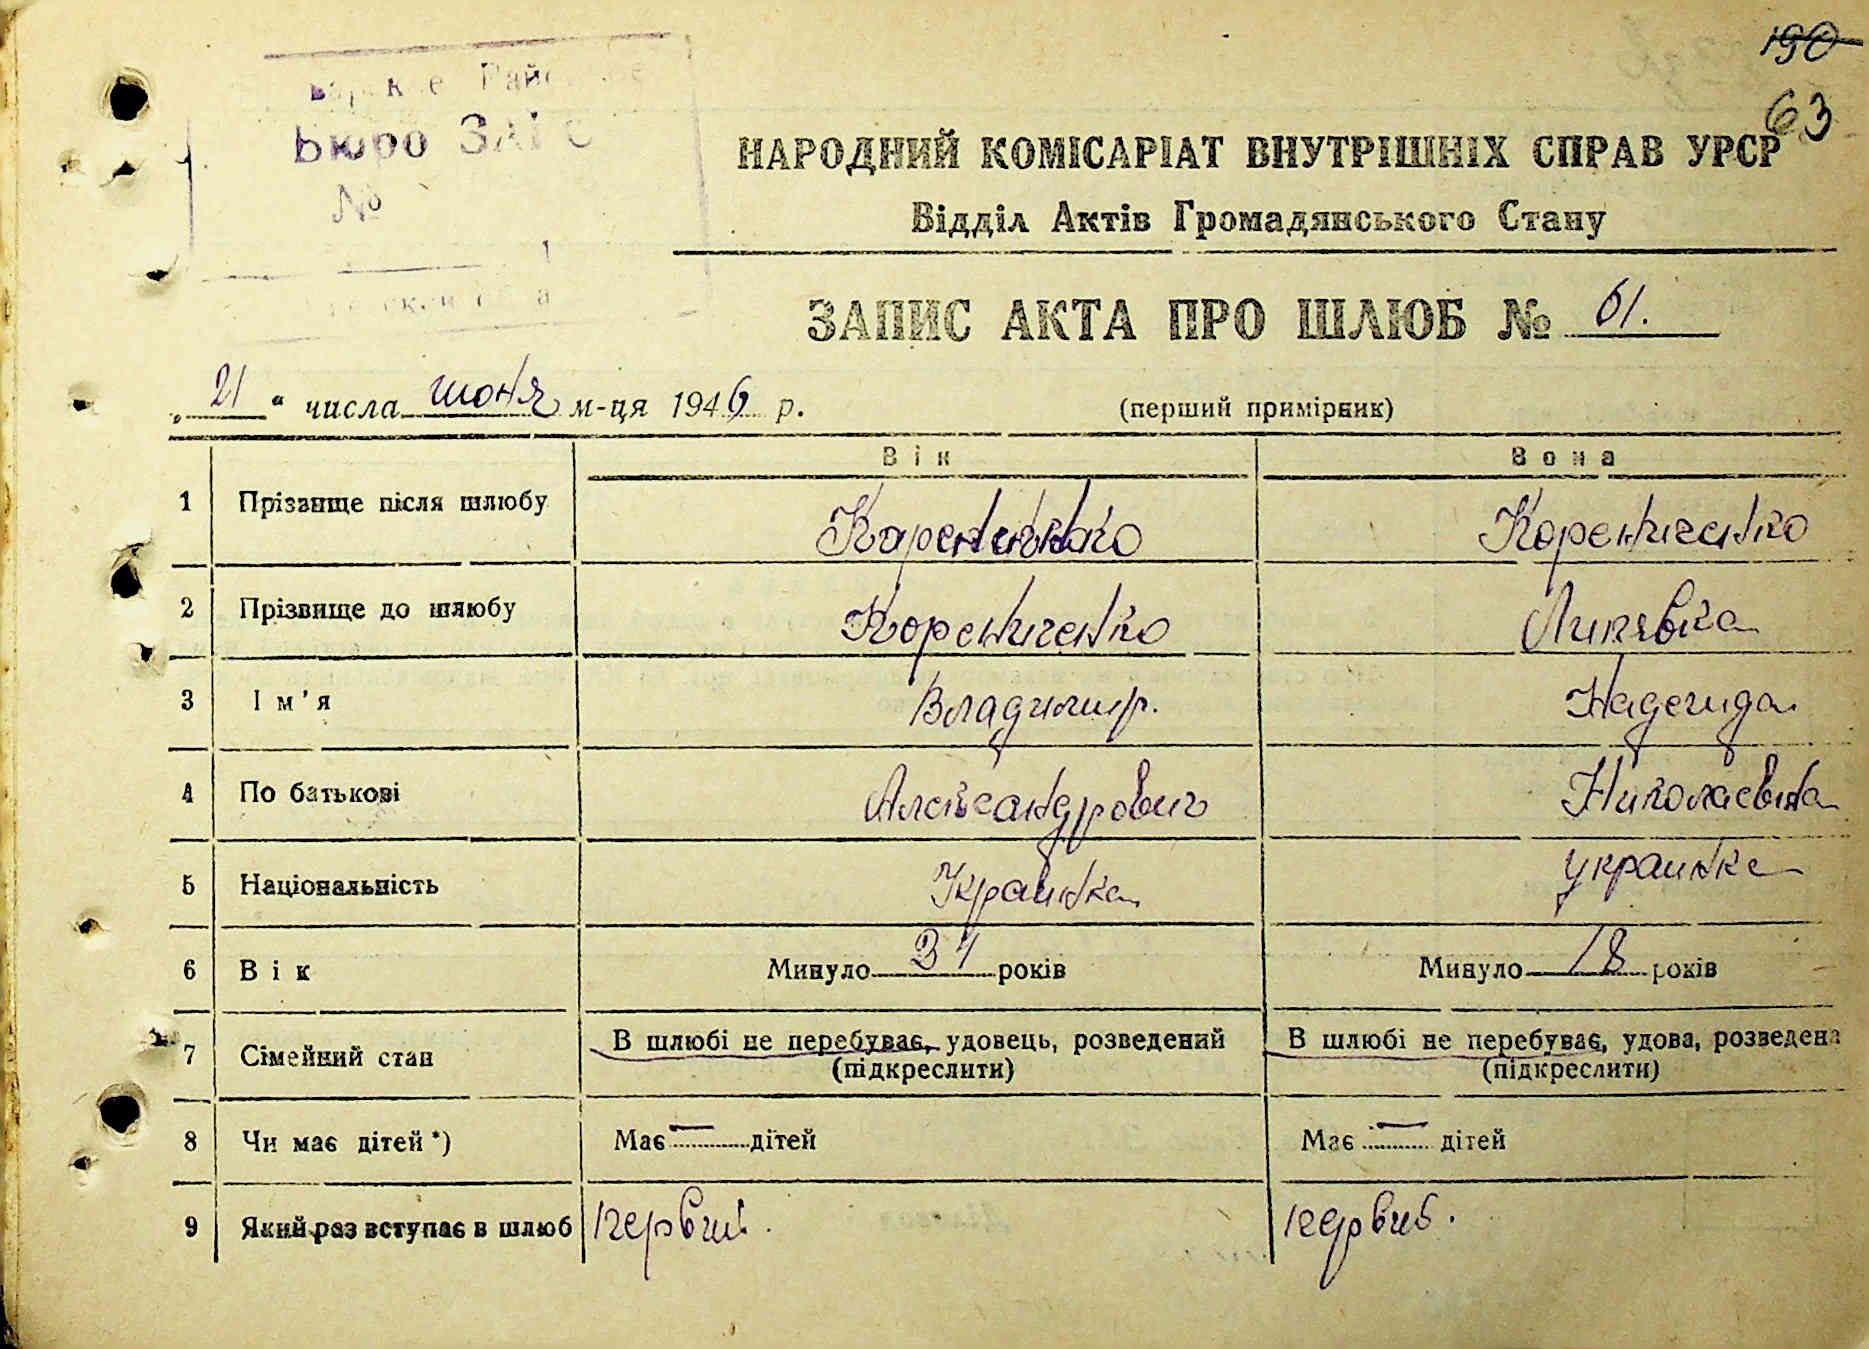 190
63
Бюро ЗАГС
№
НАРОДНИЙ КОМІСАРІАТ ВНУТРІШНІХ СПРАВ УРСР
Відділ Актів Громадянського Стану
ЗАПИС АКТА ПРО ШЛЮБ № 61.
„21“ числа июня м-ця 1946 р. (перший примірник)
Він Вона
1 Прізвище після шлюбу Корениченко Корениченко
2 Прізвище до шлюбу Корениченко Липявка
3 Ім'я Владимир. Надежда
4 По батькові Александрович Николаевна
5 Національність Украинка украинка
6 Вік Минуло 31 років Минуло 18 років
7 Сімейний стан В шлюбі не перебуває, удовець, розведений В шлюбі не перебуває, удова, розведена
(підкреслити) (підкреслити)
8 Чи має дітей *) Має — дітей Має — дітей
9 Який раз вступає в шлюб первий. первий.